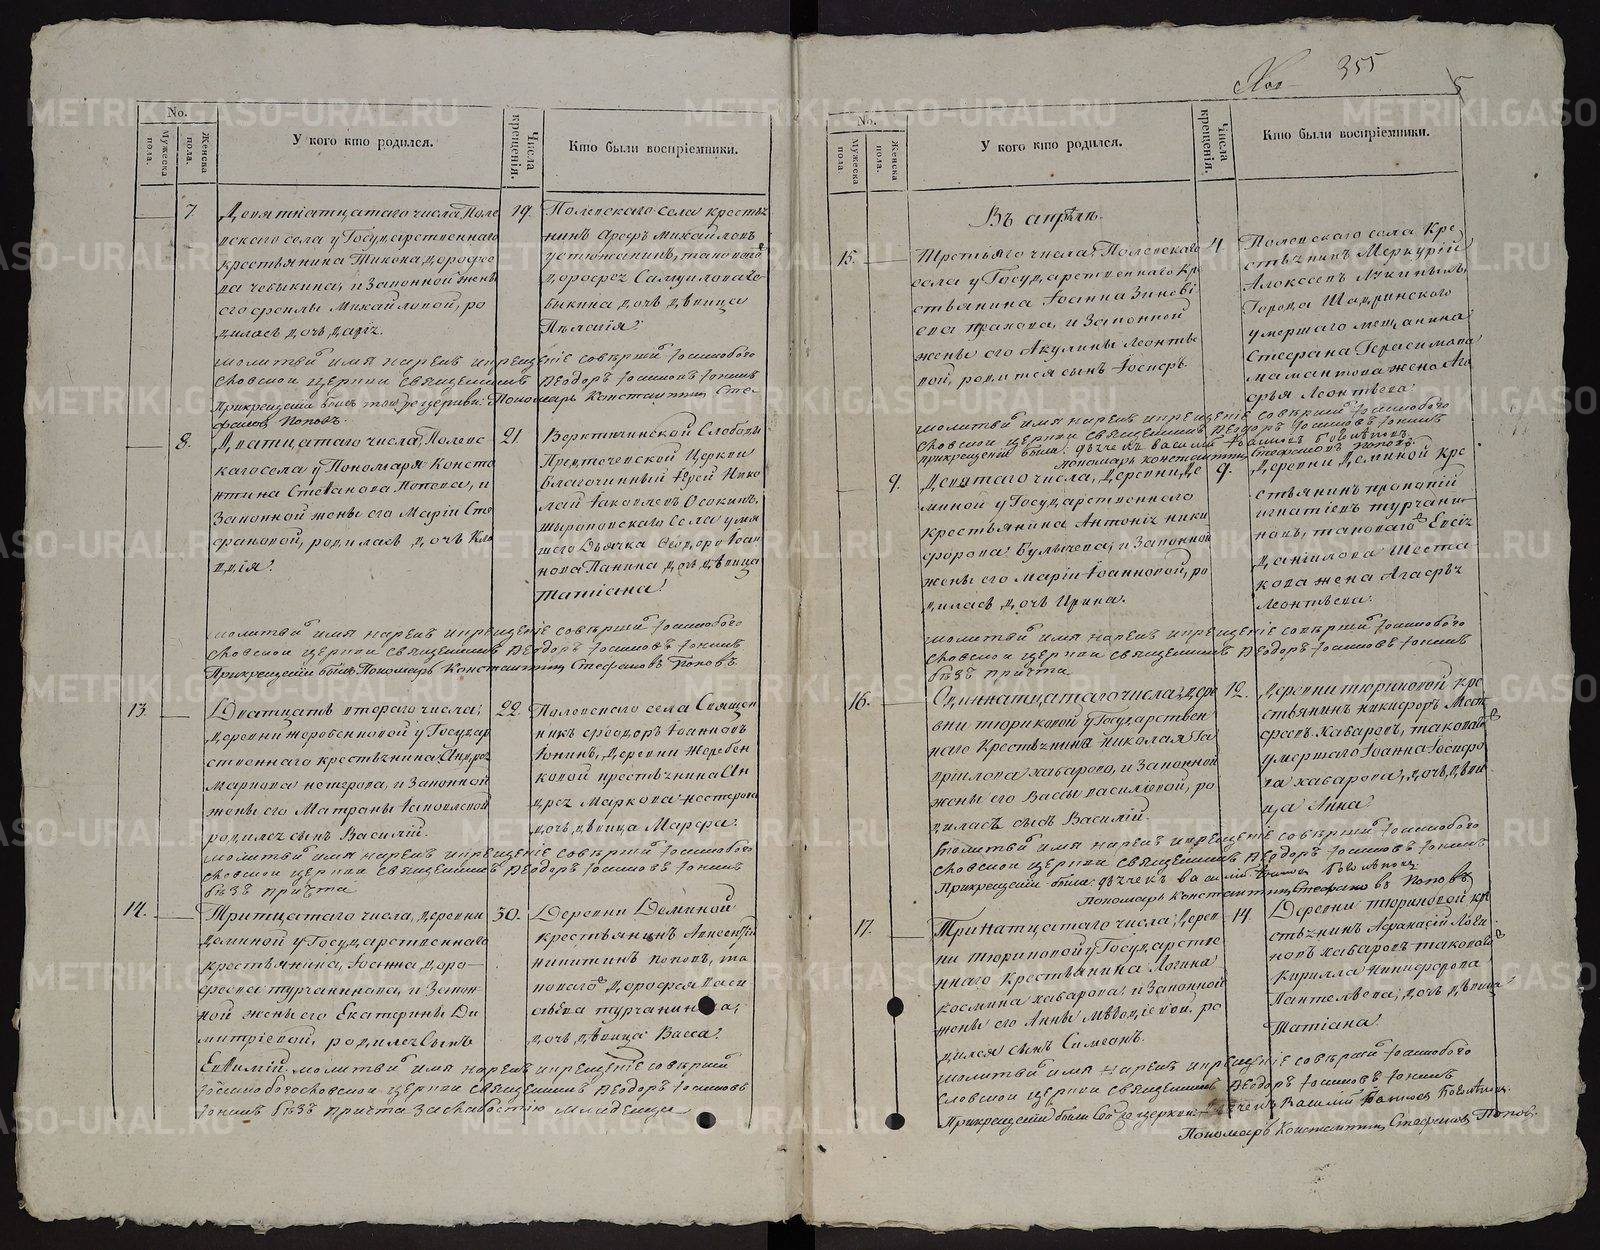 355
5
No.
Мужеска пола.
Женска пола.
У кого кто родился.
Числа крещенія.
Кто были воспріемники.
7.
Девятнатцатаго числа, Поле
вскаго села у Государственнаго
крестьянина Тихона Дорофее
ва Чебыкина, и Законной жены
его Феклы Михайловой, ро
дилась дочь Дарія.
19.
Полевскаго села крестья
нинъ
Устюжанинъ, таковаго
Дорофея Самуилова Че
быкина дочь девица
Пелагія.
молитвой имя нарекъ и крещеніе совершилъ Іоаннобого
словской церкви священникъ Феодоръ Іоанновъ Іонинъ
Прикрещеніи былъ тойже церкви Пономарь Константинъ Сте
фановъ Поповъ.
8.
Дватцатаго числа, Полевс
каго села у Пономаря Конста
нтина Стефанова Попова, и
Законной жены его Маріи Сте
фановой, родилась дочь Кла
вдія.
21.
Слободы
Предтечевской Церкви
благочинный Іерей Нико
лай Іаковлевъ Осокинъ,
села умер
шаго Дьячка Феодора Іоан
нова Панина дочь девица
Татіана.
молитвой имя нарекъ и крещеніе совершилъ Іоаннобого
словской церкви священникъ Феодоръ Іоанновъ Іонинъ
Прикрещеніи былъ Пономарь Константинъ Стефановъ Поповъ
13.
Дватцать втораго числа,
Деревни Жеребенковой у Государ
ственнаго крестьянина Андрея
Маркова Нестерова, и Законной
жены его Матроны Іаковлевой
родился сынъ Василій.
22.
Полевскаго села Священ
никъ Феодоръ Іоанновъ
Іонинъ, Деревни Жеребен
ковой крестьянина Ан
дрея Маркова Нестерова
дочь девица Марфа.
молитвой имя нарекъ и крещеніе совершилъ Іоаннобого
словской церкви священникъ Феодоръ Іоанновъ Іонинъ
безъ причта
14.
Тритцатаго числа, деревни
Деминой у Государственнаго
крестьянина, Іоанна Доро
феева Турчанинова, и Закон
ной жены его Екатерины Ди
митріевой, родился сынъ
Евѳимій.
30.
Деревни Деминой
крестьянинъ Алексей
Никитинъ Поповъ, та
коваго Дорофея Васи
льева Турчанинова,
дочь девица Васса.
молитвой имя нарекъ и крещеніе совершилъ
Іоаннобогословской церкви священникъ Феодоръ Іоанновъ
Іонинъ безъ причта за слабостію младенца
No.
Мужеска пола
Женска пола.
У кого кто родился.
Числа крещенія.
Кто были воспріемники.
Въ апрѣлѣ.
15.
Третьяго числа, Полевскаго
села у Государственнаго Кре
стьянина Іоанна Зиновi
ева и Законной
жены его Акулины Леонтье
вой, родился сынъ Іосифъ.
4
Полевскаго села Кре
стьянинъ Меркурій
Алексеевъ Лукиныхъ,
Города Шадринскаго
умершаго мещанина
Стефана Герасимова
Мамантова жена
Леонтьева.
молитвой имя нарекъ и крещеніе совершилъ Іоаннобого
словской церкви священникъ Феодоръ Іоанновъ Іонинъ
прикрещеніи были: дьячекъ василій Іоанновъ Боголеповъ
Пономарь Константинъ Стефановъ Поповъ
9.
Девятаго числа, Деревни Де
миной у Государственнаго
крестьянина Антонія Ники
форова Булычева, и Законной
жены его Маріи Іоанновой, ро
дилась дочь Ирина.
9.
Деревни Деминой кре
стьянинъ Прокопій
Игнатіевъ Турчани
новъ, таковаго
Даніилова Шеста
кова жена Агафья
Леонтьева.
молитвой имя нарекъ и крещеніе совершилъ Іоаннобого
словской церкви священникъ Феодоръ Іоанновъ Іонинъ
безъ причта
16.
Одиннатцатаго числа, дере
вни Тюриковой у Государствен
наго Крестьянина Николая Га
вріилова Хабарова, и Законной
жены его Вассы Василіевой, ро
дился сынъ Василій.
12.
Деревни Тюриковой кре
стьянинъ Никифоръ
Хабаровъ, таковаго
умершаго Іоанна Іосифо
ва Хабарова, дочь, деви
ца Анна
молитвой имя нарекъ и крещеніе совершилъ Іоаннобого
словской церкви священникъ Феодоръ Іоанновъ Іонинъ
Прикрещеніи были: дьячекъ василій Іоанновъ Боголеповъ
Пономарь Константинъ Стефановъ Поповъ
17.
Тринатцатаго числа, Дерев
ни Тюриковой у Государстве
ннаго Крестьянина Логина
Космина Хабарова, и Законной
жены его Анны Меѳодіевой, ро
дился сынъ Симеонъ.
14.
Деревни Тюриковой кре
стьянинъ Афанасій Логи
новъ Хабаровъ таковаго
Кирилла Никифорова
Пантелеева, дочь девица
Татіана.
молитвой имя нарекъ и крещеніе совершилъ Іоаннобого
словской церкви священникъ Феодоръ Іоанновъ Іонинъ
Прикрещеніи были церкви дьячекъ Василій Іоанновъ Боголеповъ
Пономарь Константинъ Стефановъ Поповъ.
METRIKI.GASO-URAL.RU